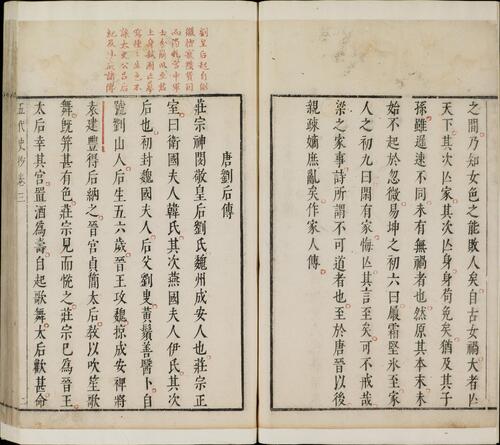 之間乃知女色之能敗人矣自古女禍大者亡
天下其次亡家其次亡身身苟免矣猶及其子
孫雖遲速不同未有無禍者也然原其本末未
始不起於忽微易坤之初六曰履霜堅氷至家
人之初九曰閑有家悔亡其言至矣可不戒哉
梁之家事詩所謂不可道者也至於唐晉以後
親疎嫡庶亂矣作家人傳
劉皇后起自
士分崩
寫種種生色不
讓太史公呂后
紀及諸傳
唐劉后傳
莊宗神閔敬皇后劉氏魏州成安人也莊宗正
室曰衛國夫人韓氏其次燕國夫人伊氏其次
后也初封魏國夫人后父劉叟黃鬚善醫卜自
號劉山人后生五六歲晉王攻魏掠成安裨將
袁建豐得后納之晉宮貞簡太后敎以吹笙歌
舞旣笄甚有色莊宗見而悅之莊宗已為晉王
太后幸其宮置酒為壽自起歌舞太后歡甚命
五代史抄卷三